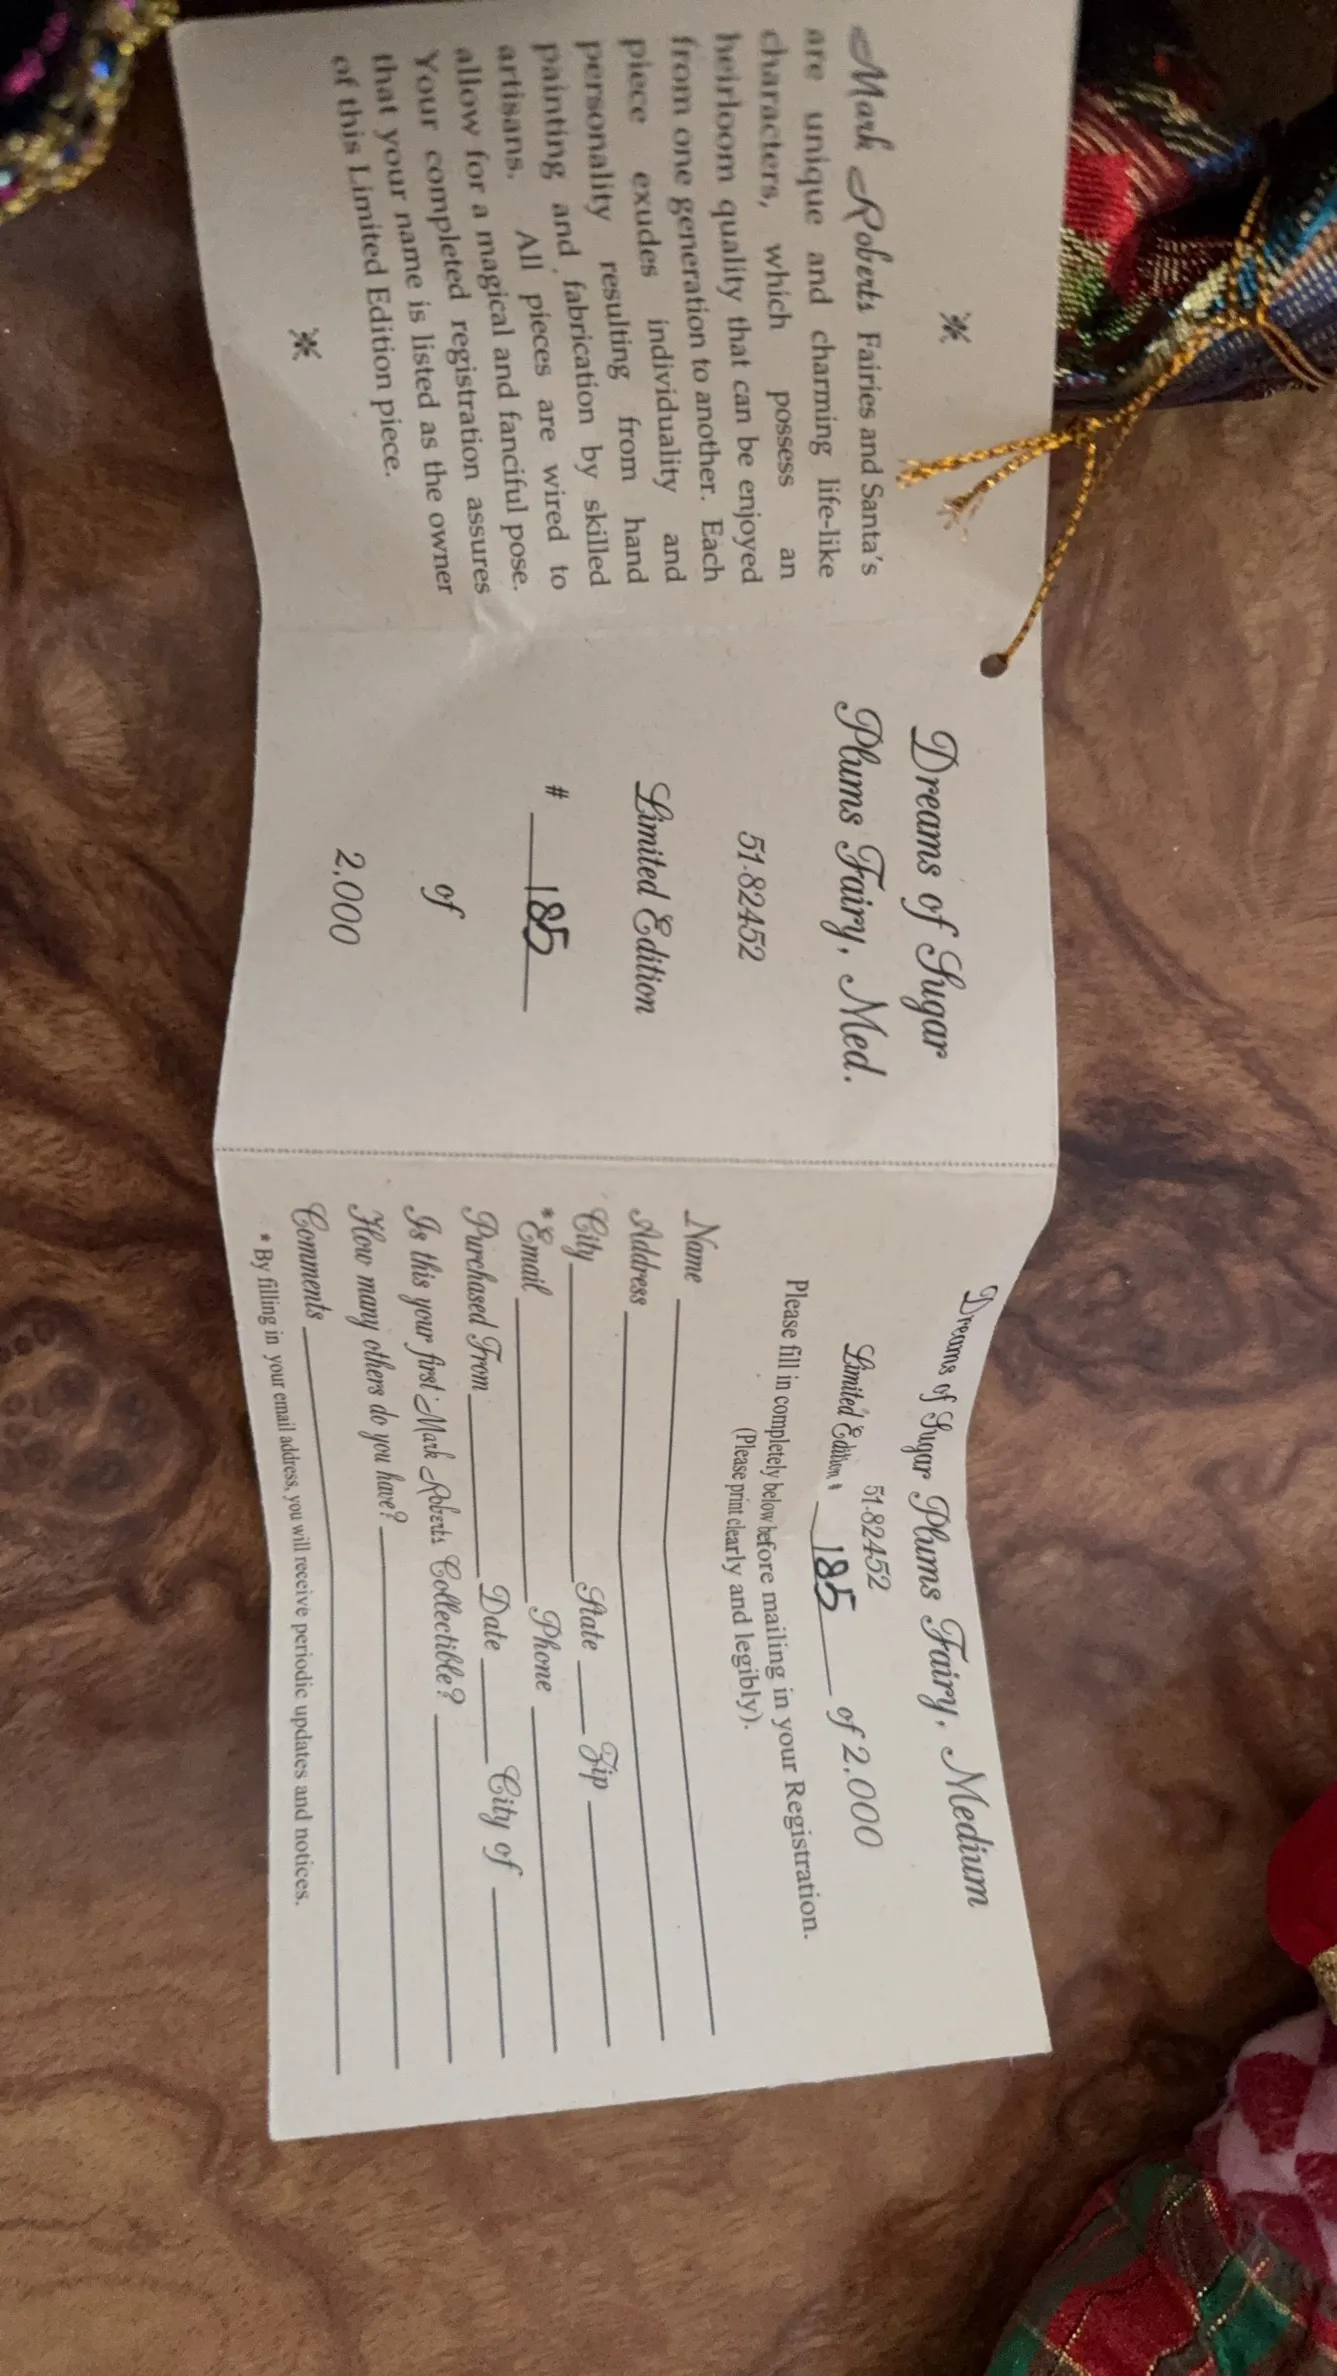 *
Mark Roberts Fairies and Santa's
are unique and charming life-like
characters, which possess an
heirloom quality that can be enjoyed
from one generation to another. Each
piece exudes individuality and
personality resulting from hand
painting and fabrication by skilled
artisans. All pieces are wired to
allow for a magical and fanciful pose.
Your completed registration assures
that your name is listed as the owner
of this Limited Edition piece.
*
Dreams of Sugar
Plums Fairy, Med.
51-82452
Limited Edition
# 185
of
2,000
Dreams of Sugar Plums Fairy, Medium
51-82452
Limited Edition # 185 of 2,000
Please fill in completely below before mailing in your Registration.
(Please print clearly and legibly).
Name
Address
City State Zip
*Email Phone
Purchased From Date City of
Is this your first Mark Roberts Collectible?
How many others do you have?
Comments
* By filling in your email address, you will receive periodic updates and notices.